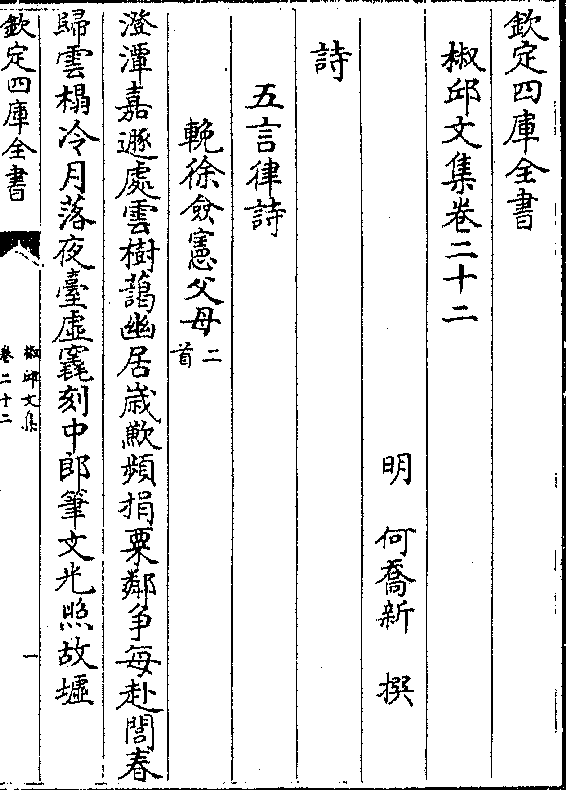 欽定四庫全書
椒邱文集卷二十二
明 何喬新 撰
詩
五言律詩
輓徐僉憲父母二首
澄潭嘉遯處雲樹藹幽居歲歉頻捐粟鄰争每赴閭春
歸雲榻冷月落夜臺虛窀刻中郎筆文光照故墟
欽定四庫全書
椒邱文集
卷二十二
一